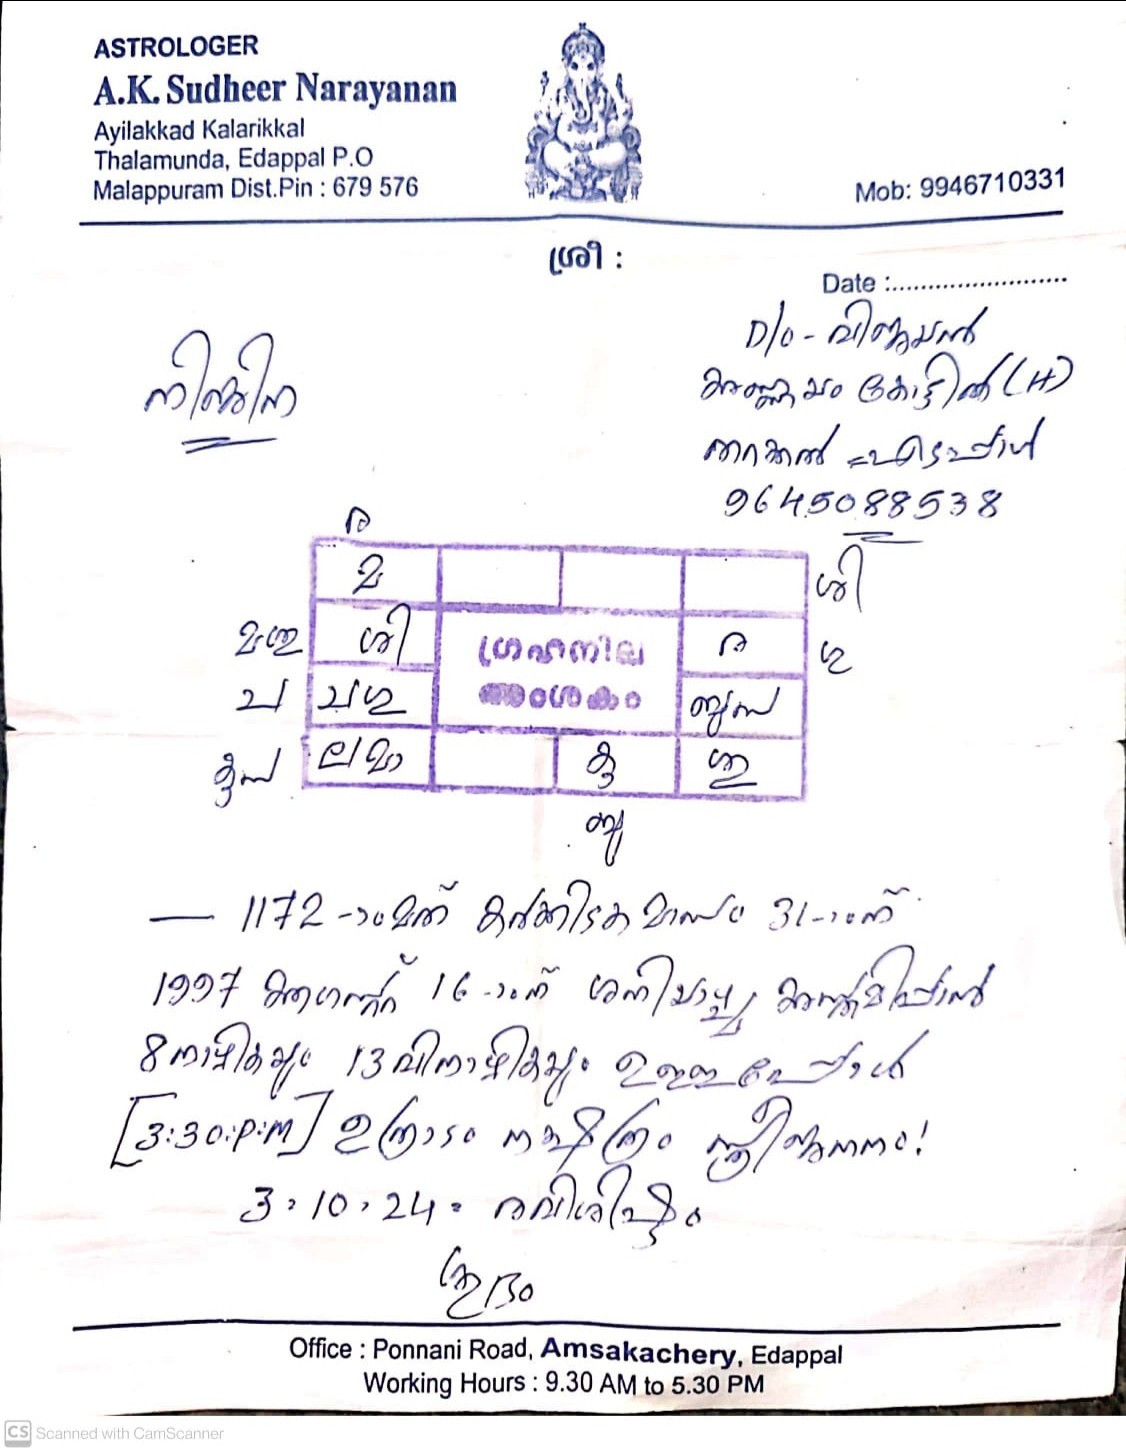 ASTROLOGER
A.K. Sudheer Narayanan
Ayilakkad Kalarikkal
Thalamunda, Edappal P.O
Malappuram Dist.Pin : 679 576
Mob: 9946710331
ശ്രീ :
Date :........................
D/o - വിജയൻ
(H)
എടപ്പാൾ
9645088538
നിജിന
ര
മ
ശി
ശി
ര
ഗു
ഗ്രഹനില
അംശകം
ച
ല മാ
കു
ബു
— 1172-ാംമത് കർക്കിടകമാസം 31-ാംന്
1997 ആഗസ്റ്റ് 16-ാംന് ശനിയാഴ്ച്ച അസ്തമിപ്പാൻ
8 നാഴികയും 13 വിനാഴികയും ഉള്ളപ്പോൾ
[3:30:P:M] ഉത്രാടം നക്ഷത്രം സ്ത്രീജനനം!
3 . 10 . 24 . രവിശിഷ്ടം
ശുഭം
Office : Ponnani Road, Amsakachery, Edappal
Working Hours : 9.30 AM to 5.30 PM
CS Scanned with CamScanner